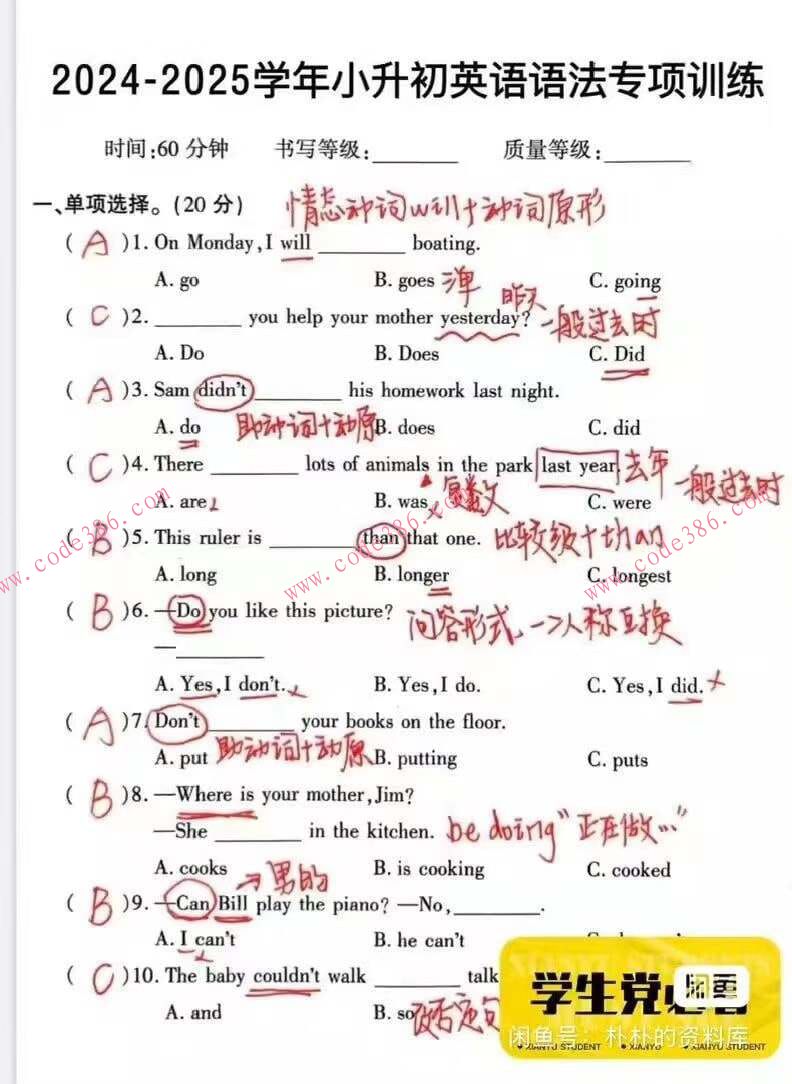 2024-2025学年小升初英语语法专项训练
时间:60 分钟 书写等级:______ 质量等级:______
一、单项选择。(20 分) 情态动词will+动词原形
( A )1. On Monday, I will ________ boating.
A. go B. goes 三单 C. going
昨天
( C )2. ________ you help your mother yesterday? 一般过去时
A. Do B. Does C. Did
( A )3. Sam didn't ________ his homework last night.
A. do 助动词+动原 B. does C. did
( C )4. There ________ lots of animals in the park last year. 去年
一般过去时
A. are B. was 复数 C. were
( B )5. This ruler is ________ than that one. 比较级+than
A. long B. longer C. longest
( B )6. —Do you like this picture? 问答形式、一>人称互换
—________
A. Yes, I don't. × B. Yes, I do. C. Yes, I did. ×
( A )7. Don't ________ your books on the floor.
A. put 助动词+动原 B. putting C. puts
( B )8. —Where is your mother, Jim?
—She ________ in the kitchen. be doing "正在做…"
A. cooks B. is cooking C. cooked
→男的
( B )9. —Can Bill play the piano? —No, ________.
A. I can't B. he can't
( C )10. The baby couldn't walk ________ talk
A. and B. so 否定句
学生党必
闲鱼
闲鱼号：朴朴的资料库
XIANYU STUDENT XIANYU XIANYU STUDENT
www.code386.com
www.code386.com
www.code386.com